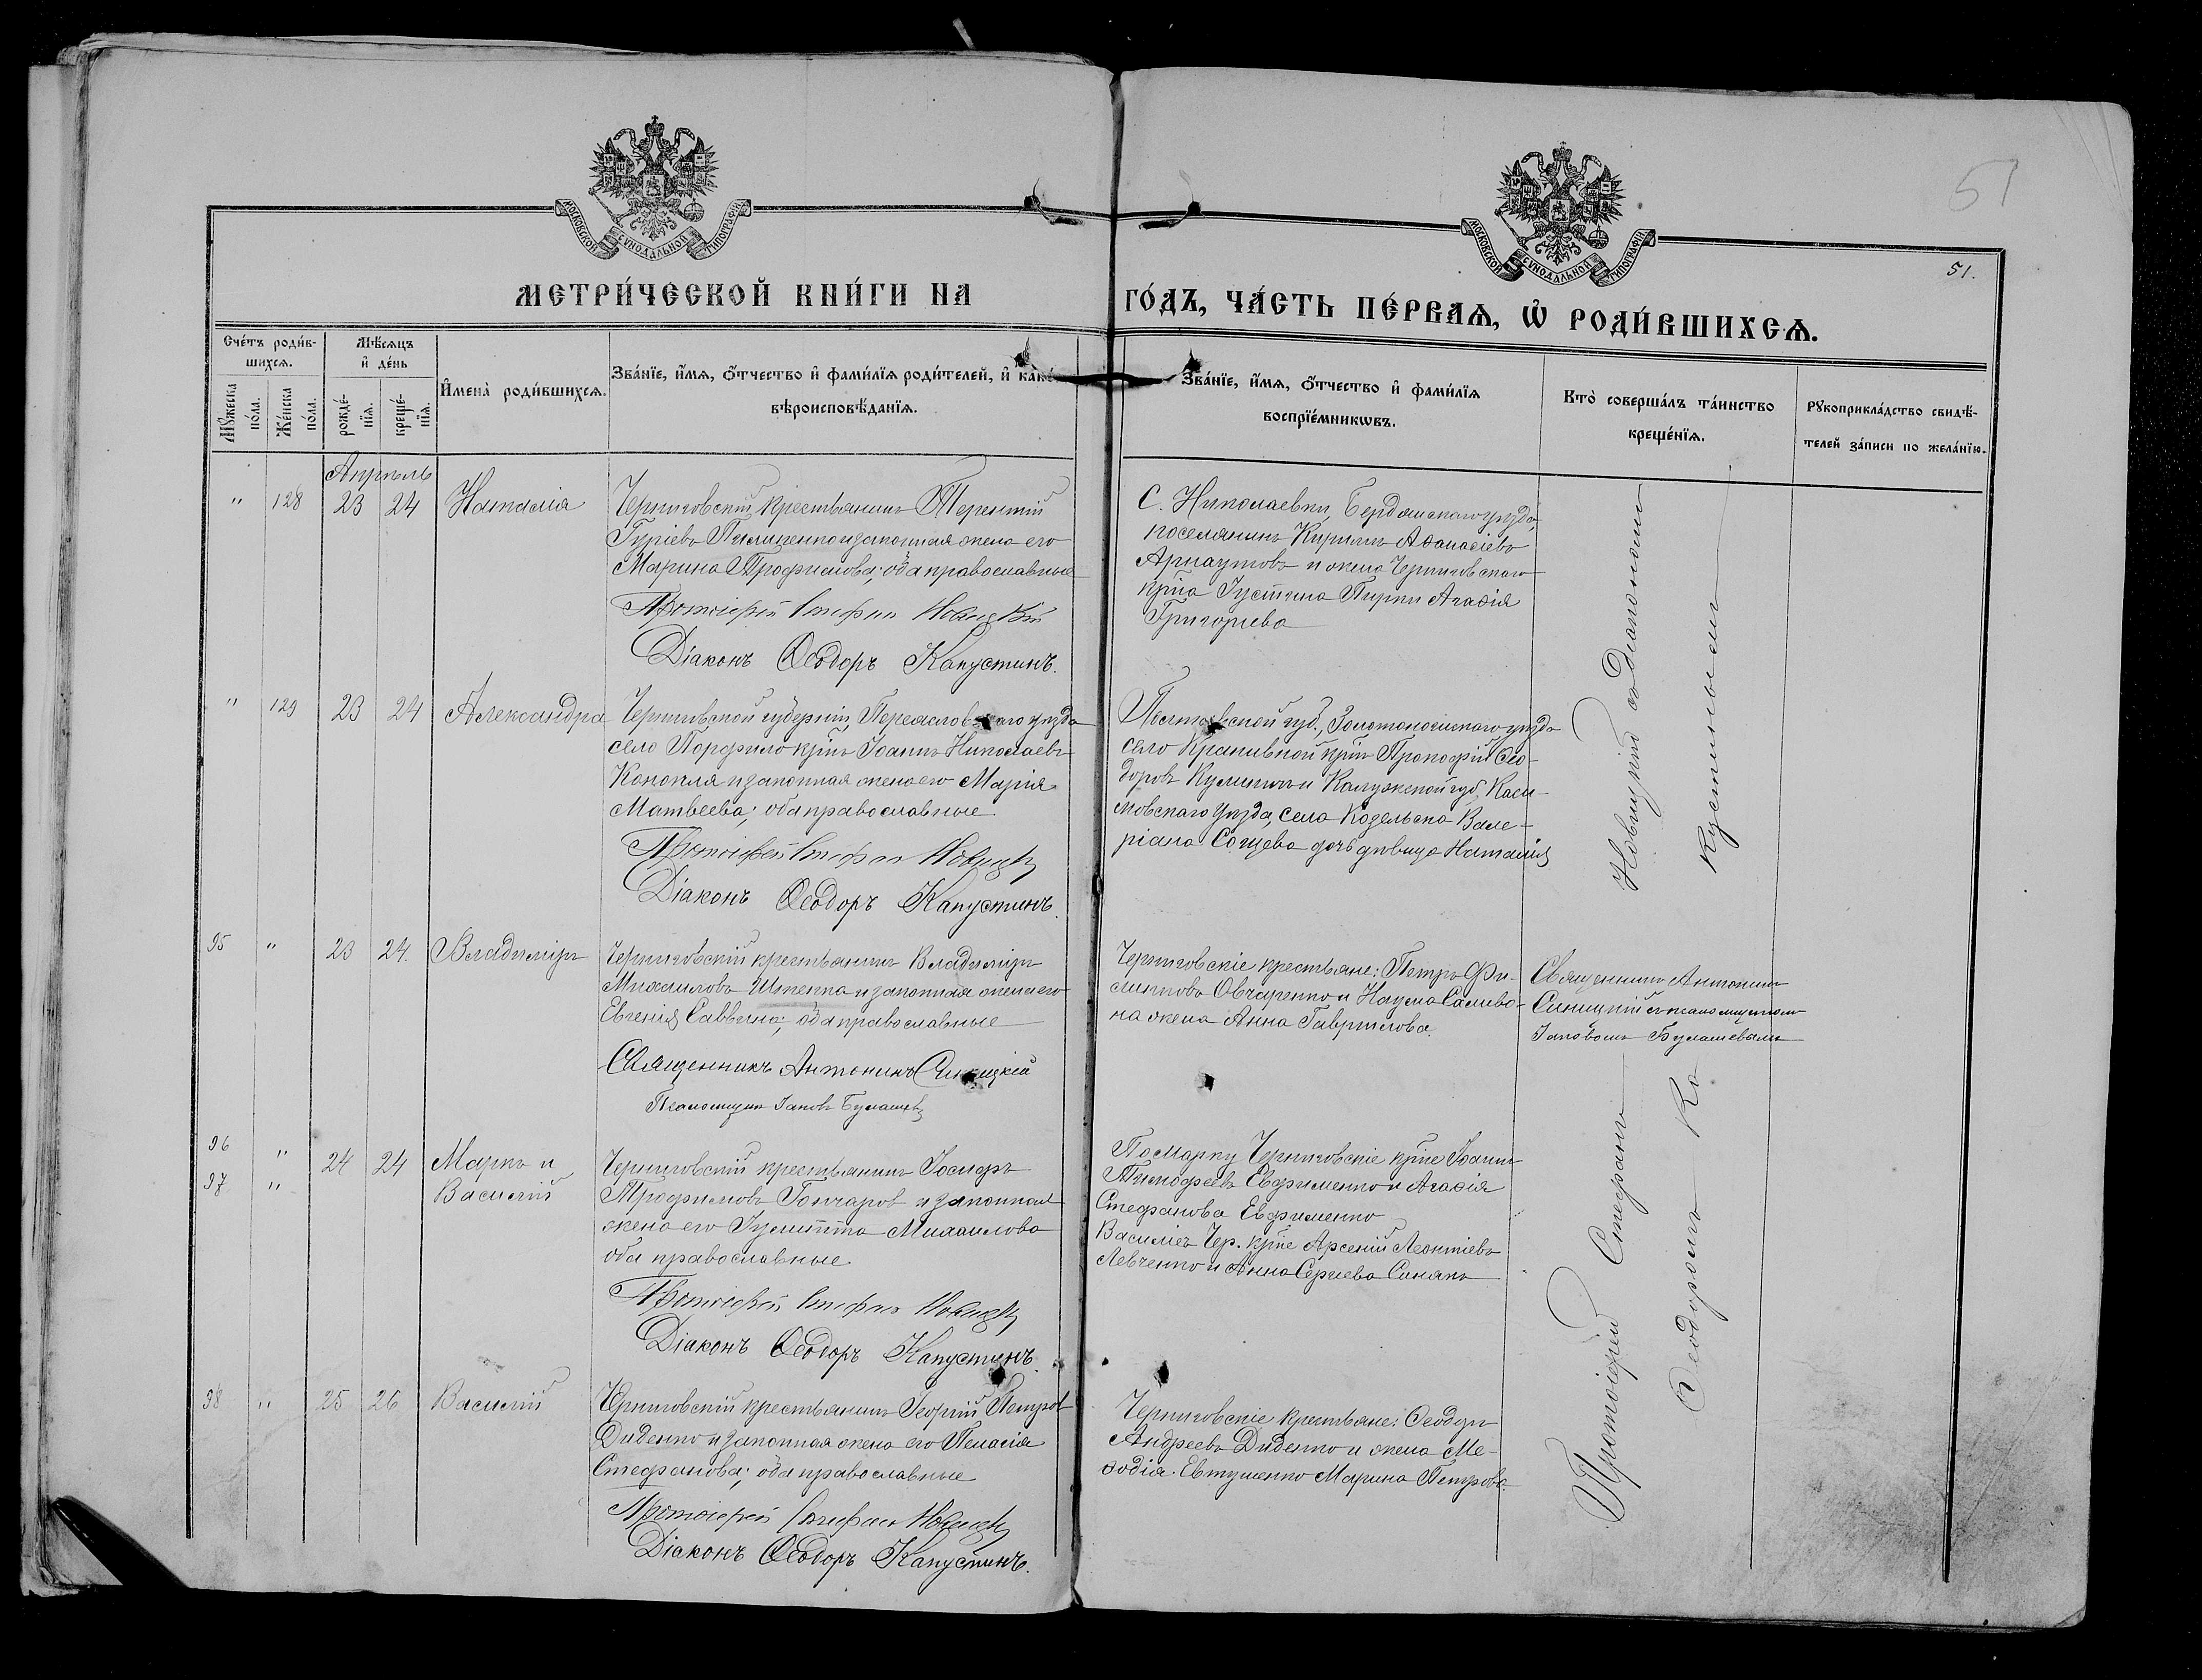 51
51.
МОСКОВСКОЙ СУНОДАЛЬНОЙ ТИПОГРАФІИ
МОСКОВСКОЙ СУНОДАЛЬНОЙ ТИПОГРАФІИ
МЕТРИ́ЧЕСКОЙ КНИ́ГИ НА
ГО́ДЪ, ЧА́СТЬ ПЕ́РВАЯ, Ѡ҆ РОДИ́ВШИХСЯ.
Сче́тъ роди́в-
шихсѧ.
Мꙋ́жеска
по́ла.
Же́нска
по́ла.
Мѣ́сѧцъ
и҆ де́нь
рожде́-
нїѧ.
креще́-
нїѧ.
И҆мена̀ роди́вшихсѧ.
Зва́нїе, и҆́мѧ, ѻ҆́тчество и҆ фами́лїѧ роди́телей, и҆ како́
вѣроисповѣ́данїѧ.
Зва́нїе, и҆́мѧ, ѻ҆́тчество и҆ фами́лїѧ
воспрїе́мникѡвъ.
Кто̀ соверша́лъ та́инство
креще́нїѧ.
Рꙋкоприкла́дство свидѣ́-
телей за́писи по жела́нїю.
Апрѣль
" 128 23 24 Наталія
Черниговскій крестьянинъ Терентій
Гуріевъ Пилипенко и законная жена его
Марина Трофимова; оба православные
Протоіерей Стефан Новицкій
Діаконъ Ѳеодоръ Капустинъ.
С. Николаевки, Бердянскаго уѣзда,
поселянинъ Кириллъ Аѳанасіевъ
Арнаутовъ и жена Черниговскаго
кр͠на Іустина Пирки Агаѳія
Григориева
" 129 23 24 Александра
Черниговской губерніи, Переясловскаго уѣзда
село Порфило кр͠нъ Іоаннъ Николаевъ
Конопля и законная жена его Марія
Матвеева; оба православные
Протоіерей Стефан Новицкій
Діаконъ Ѳеодоръ Капустинъ.
Полтавской губ., Золотоношскаго уѣзда
село Крапивной кр͠нъ Прокофій Ѳео-
доровъ и Калужской губ. Каси-
мовскаго уѣзда, села Козельска Вале-
ріана дочь дѣвица Наталія
95 " 23 24. Владиміръ
Черниговскій крестьянинъ Владиміръ
Михаиловъ Шпенка и законная жена его
Евгенія Саввина; оба православные
Священникъ Антонинъ Синицкій
Псаломщик Іаков Булашев
Черниговскіе крестьяне: Петръ Фи-
липповъ Овчаренко и Наума Саливо-
на жена Анна Гаврилова.
Священникъ Антонинъ
Синицкій съ псаломщикомъ
Іаковомъ Булашевымъ
96 " 24 24 Маркъ и
97 " Василій
Черниговскій крестьянинъ Іосифъ
Трофимовъ Гончаров и законная
жена его Іулитта Михаилова
оба православные
Протоіерей Стефан Новицкій
Діаконъ Ѳеодоръ Капустинъ.
По Марку Черниговскіе кр͠не Іоаннъ
Тимофеевъ Евфименко и Агаѳія
Стефанова Евфименко
Василіевъ Чер. кр͠не Арсеній Леонтіевъ
Левченко и Анна Сергиева Синякъ
98 " 25 26 Василій
Черниговскій крестьянинъ Георгій Петров
Диденко и законная жена его Пелагія
Стефанова; оба православные
Протоіерей Стефан Новицкій
Діаконъ Ѳеодоръ Капустинъ.
Черниговскіе крестьяне: Ѳеодоръ
Андреевъ Диденко и жена Ме-
ѳодія Евтушенко Марина Петрова
Протоіерей Стефанъ Новицкій съ Діакономъ
Ѳеодоромъ Капустинымъ